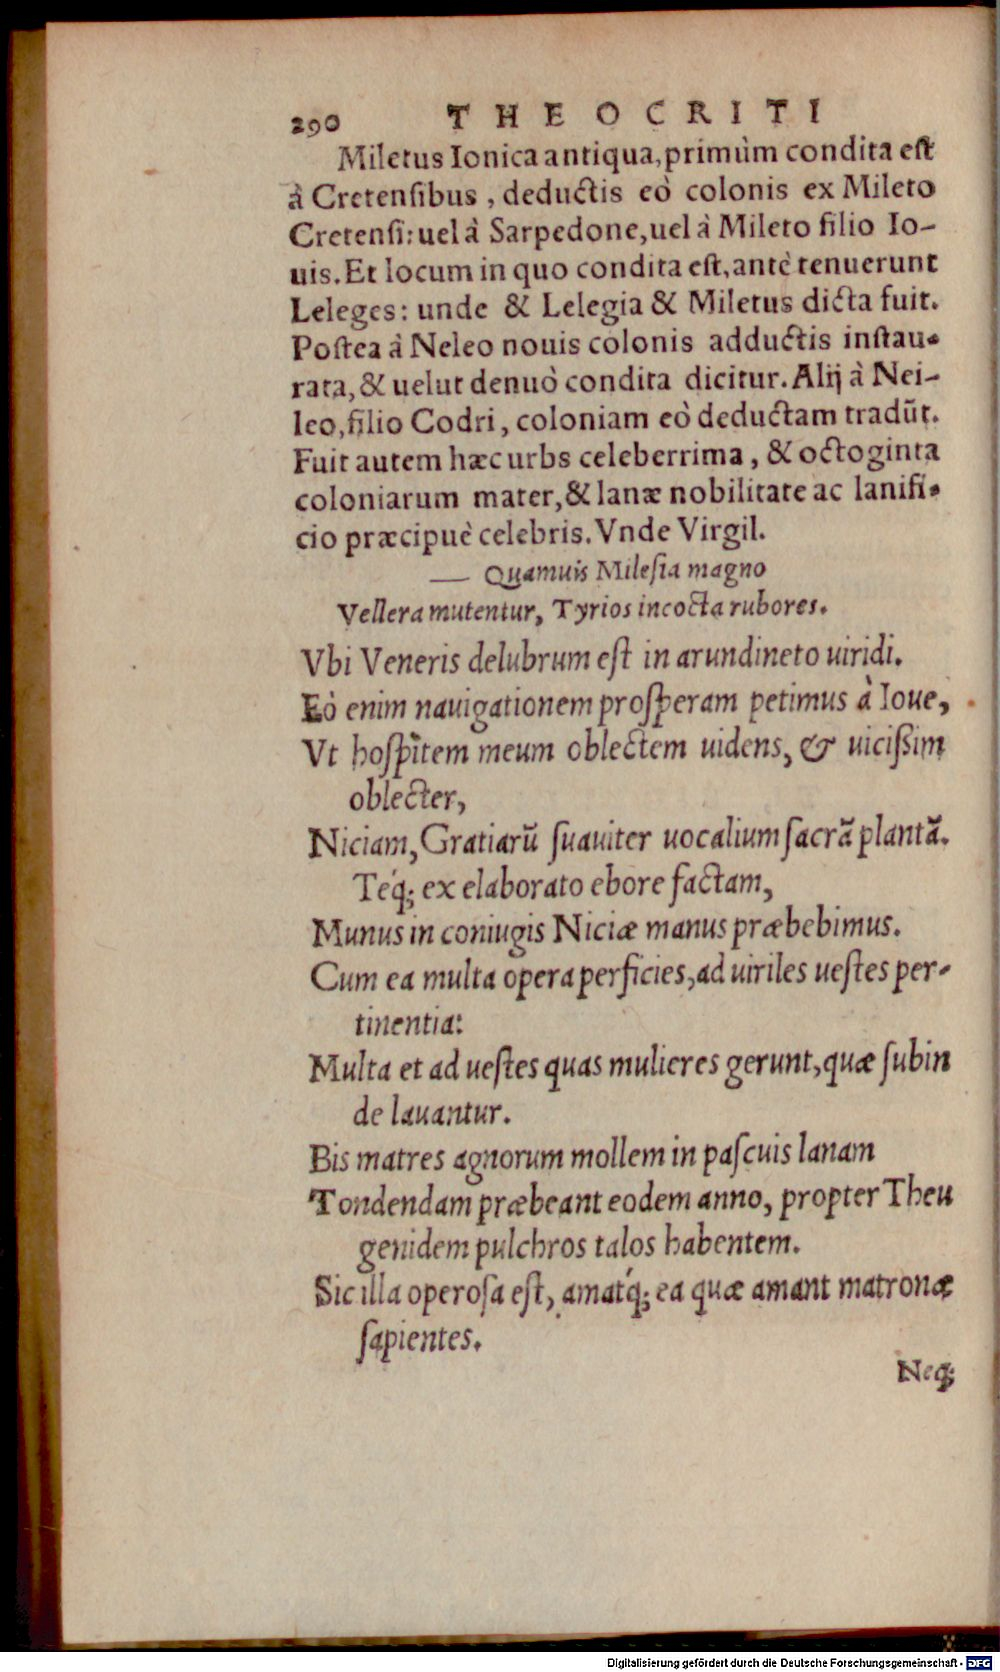 290 THEOCRITI
Miletus Ionica antiqua, primùm condita est
à Cretensibus, deductis eò colonis ex Mileto
Cretensi: uel à Sarpedone, uel à Mileto filio Io-
uis. Et locum in quo condita est, antè tenuerunt
Leleges: unde & Lelegia & Miletus dicta fuit.
Postea à Neleo nouis colonis adductis instau-
rata, & uelut denuò condita dicitur. Alij à Nei-
leo, filio Codri, coloniam eò deductam tradũt.
Fuit autem hæc urbs celeberrima, & octoginta
coloniarum mater, & lanæ nobilitate ac lanifi-
cio præcipuè celebris. Vnde Virgil.
— Quamuis Milesia magno
Vellera mutentur, Tyrios incocta rubores.
Vbi Veneris delubrum est in arundineto uiridi.
Eò enim nauigationem prosperam petimus à Ioue,
Vt hospitem meum oblectem uidens, & uicißim
oblecter,
Niciam, Gratiarũ suauiter uocalium sacrã plantã.
Teq́; ex elaborato ebore factam,
Munus in coniugis Niciæ manus præbebimus.
Cum ea multa opera perficies, ad uiriles uestes per-
tinentia:
Multa et ad uestes quas mulieres gerunt, quæ subin
de lauantur.
Bis matres agnorum mollem in pascuis lanam
Tondendam præbeant eodem anno, propter Theu
genidem pulchros talos habentem.
Sic illa operosa est, amatq́; ea quæ amant matronæ
sapientes.
Neq;
Digitalisierung gefördert durch die Deutsche Forschungsgemeinschaft - DFG